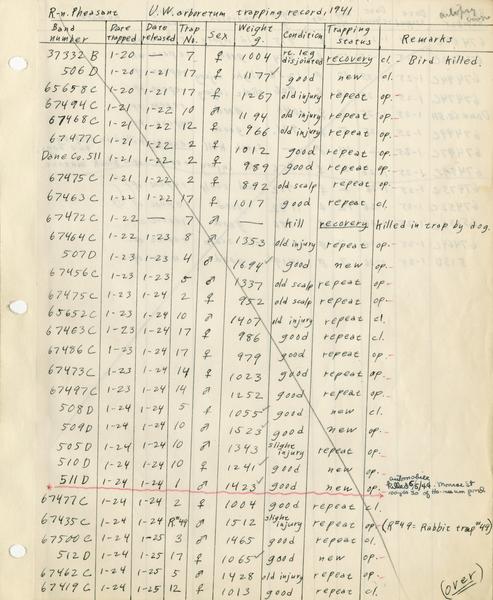 R-n. Pheasant U.W. arboretum trapping record, 1941
Band number Date trapped Date released Trap No. Sex Weight g. Condition Trapping status Remarks
37332 B 1-20 — 7 ♀ 1004 rt. leg disjointed recovery cl. - Bird killed.
506 D 1-20 1-21 17 ♀ 1177✓ good new cl.
65658 C 1-20 — 17 ♀ 1267 old injury repeat op.-
67494 C 1-21 1-22 10 ♂ 1194 old injury repeat op.-
67468 C 1-21 1-22 12 ♀ 966 old injury repeat op.-
67477 C 1-21 1-22 2 ♀ 1012 good repeat op.-
Dane Co. 511 1-21 1-22 2 ♀ 989 good repeat op.-
67475 C 1-21 1-22 2 ♀ 892 old scalp repeat op.-
67463 C 1-22 1-22 17 ♀ 1017 good repeat cl.
67472 C 1-22 — 7 ♂ — kill recovery killed in trap by dog.
67464 C 1-22 1-23 8 ♂ 1353 old injury repeat op.-
507 D 1-23 1-23 4 ♂ 1694✓ good new op.-
67456 C 1-23 1-23 5 ♂ 1337 old scalp repeat op.-
67475 C 1-23 1-24 2 ♀ 952 old scalp repeat op.-
65652 C 1-23 1-24 10 ♂ 1407 old injury repeat cl.
67463 C 1-23 1-24 17 ♀ 986 good repeat cl.
67486 C 1-23 1-24 17 ♀ 979 good repeat op.-
67473 C 1-23 1-24 14 ♀ 1023 good repeat op.-
67497 C 1-23 1-24 14 ♂ 1252 good repeat op.-
508 D 1-24 1-24 5 ♀ 1055✓ good new cl.
509 D 1-24 1-24 10 ♂ 1523✓ good new op.-
505 D 1-24 1-24 10 ♂ 1343 slight injury repeat op.-
510 D 1-24 1-24 10 ♀ 1241✓ good new op.-
511 D 1-24 1-24 1 ♂ 1423✓ good new op.- automobile killed
67477 C 1-24 1-24 2 ♀ 1004 good repeat cl.
67435 C 1-24 1-24 R#49 ♂ 1512 slight injury repeat op.- (R#49 = Rabbit trap #49)
67500 C 1-24 1-25 3 ♂ 1465 good repeat cl.
512 D 1-24 1-25 17 ♀ 1065✓ good new op.-
67462 C 1-24 1-25 5 ♂ 1428 old injury repeat op.-
67419 C 1-24 1-25 12 ♀ 1013 good repeat cl.
(over)